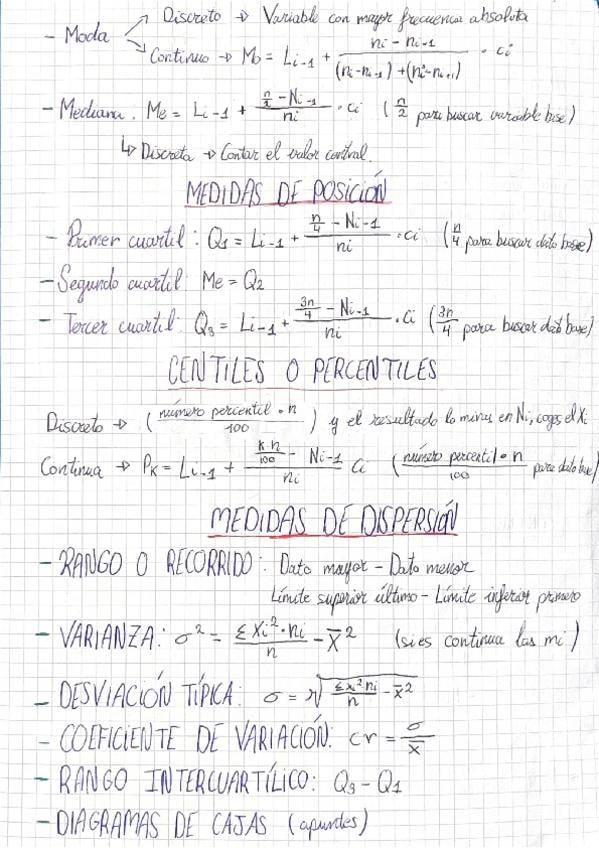 - Moda → Discreto → Variable con mayor frecuencia absoluta
→ Continuo → Mo = Li-1 + (ni - ni-1) / ((ni-ni-1) + (ni-ni+1)) · ci
- Mediana. Me = Li-1 + (n/2 - Ni-1) / ni · ci (n/2 para buscar variable base)
↳ Discreta → Contar el valor central.
MEDIDAS DE POSICIÓN
- Primer cuartil: Q1 = Li-1 + (n/4 - Ni-1) / ni · ci (n/4 para buscar dato base)
- Segundo cuartil: Me = Q2
- Tercer cuartil: Q3 = Li-1 + (3n/4 - Ni-1) / ni · ci (3n/4 para buscar dato base)
CENTILES O PERCENTILES
Discreto → (número percentil · n / 100) y el resultado lo miras en Ni, coges el Xi
Continua → PK = Li-1 + (k·n/100 - Ni-1) / ni ci (número percentil · n / 100 para dato base)
MEDIDAS DE DISPERSIÓN
- RANGO O RECORRIDO: Dato mayor - Dato menor
Límite superior último - Límite inferior primero
- VARIANZA: σ² = Σxi²·ni / n - x̄² (si es continua las mi)
- DESVIACIÓN TÍPICA: σ = √(Σxi²·ni / n - x̄²)
- COEFICIENTE DE VARIACIÓN: cv = σ / x̄
- RANGO INTERCUARTÍLICO: Q3 - Q1
- DIAGRAMAS DE CAJAS (apuntes)